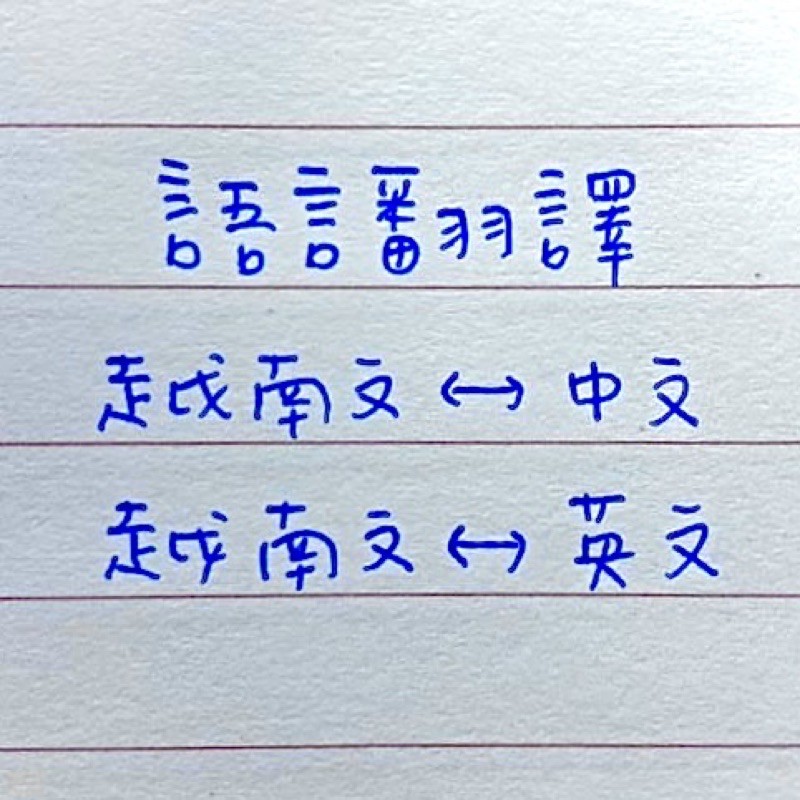 語言翻譯
越南文↔中文
越南文↔英文